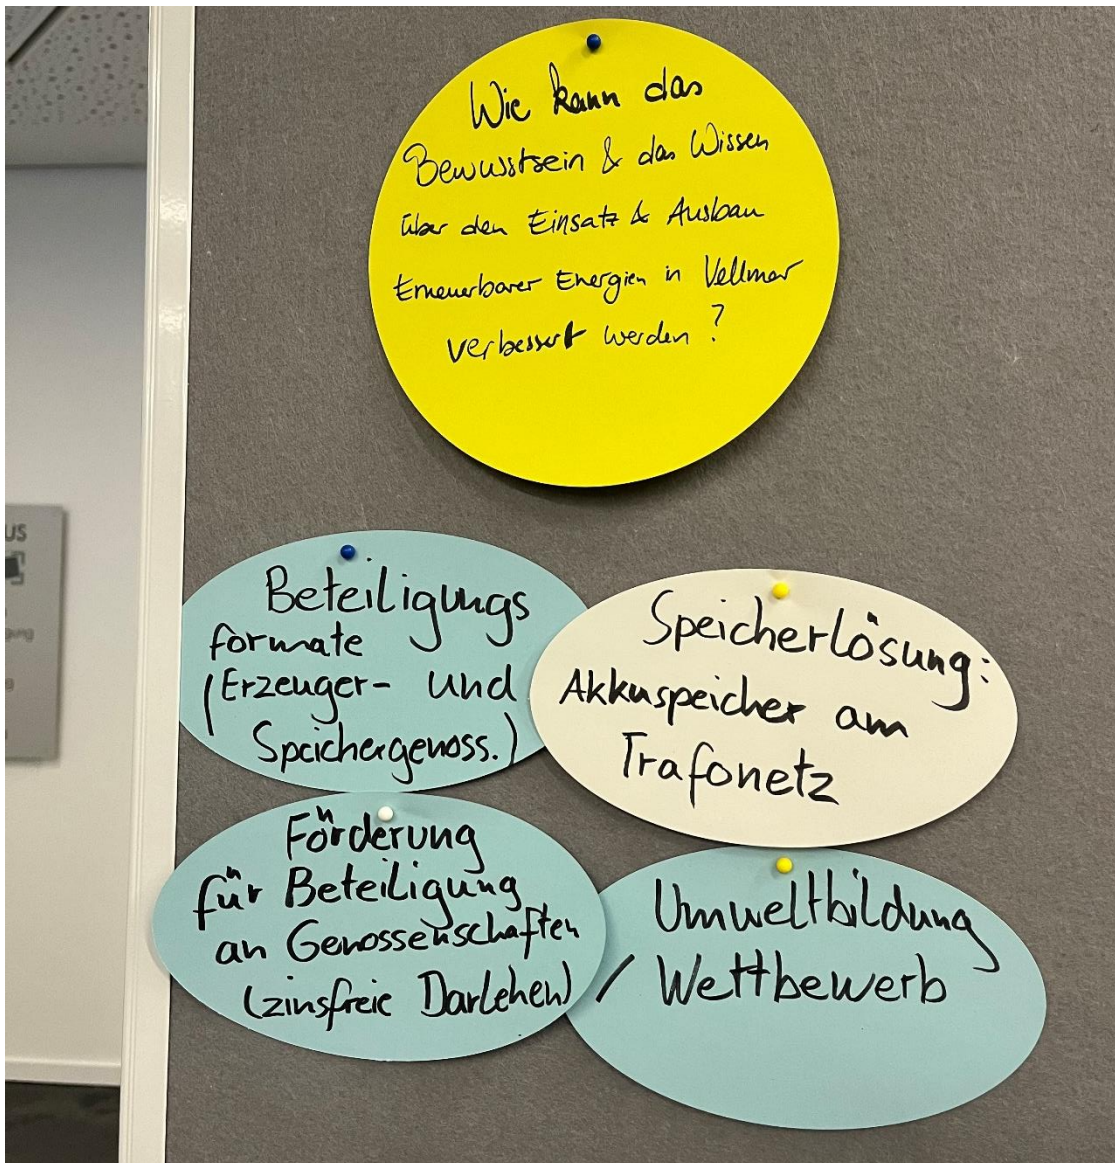 Wie kann das
Bewusstsein & das Wissen
über den Einsatz & Ausbau
Erneuerbarer Energien in Vellmar
verbessert werden?
Beteiligungs
formate
(Erzeuger- und
Speichergenoss.)
Speicherlösung:
Akkuspeicher am
Trafonetz
Förderung
für Beteiligung
an Genossenschaften
(zinsfreie Darlehen)
Umweltbildung
/ Wettbewerb
US